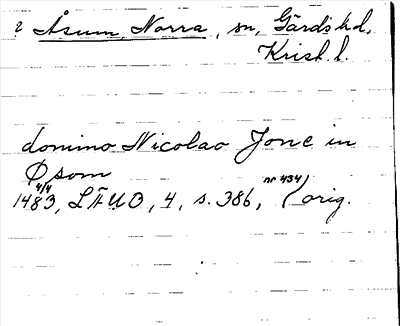 2 Åsum, Norra, sn, Gärds hd,
Krist. l.
domino Nicolao Jone in
Øsom
4/4 nr 434
1483, LÄUO, 4, s. 386, orig.